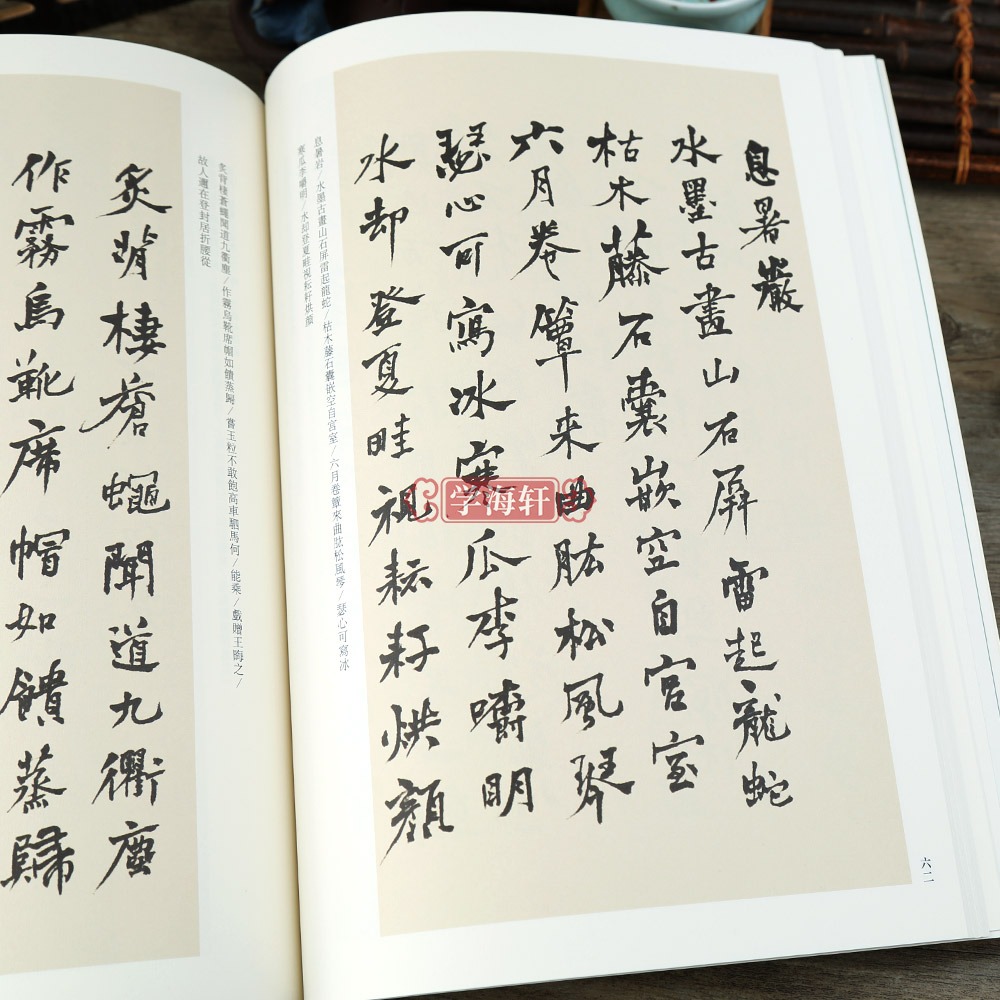 息暑巖
水墨古畫山石屏雷起龍蛇
枯木藤石囊嵌空自宮室
六月卷簟来曲肱松風琴
瑟心可寫冰寒瓜李嚼明
水却登夏畦視耘耔烘顔
息暑岩/水墨古畫山石屏雷起龍蛇/枯木藤石囊嵌空自宮室/六月卷簟來曲肱松風琴/瑟心可寫冰
寒瓜李嚼明/水却登夏畦視耘耔烘顔
六二
炙背棲蒼蠅聞道九衢塵
作霧烏靴席帽如饋蒸歸
炙背棲蒼蠅聞道九衢塵/作霧烏靴席帽如饋蒸歸/嘗玉粒不敢飽高車駟馬何/能乘/戲贈王晦之/
故人還在登封居折腰從
学海轩